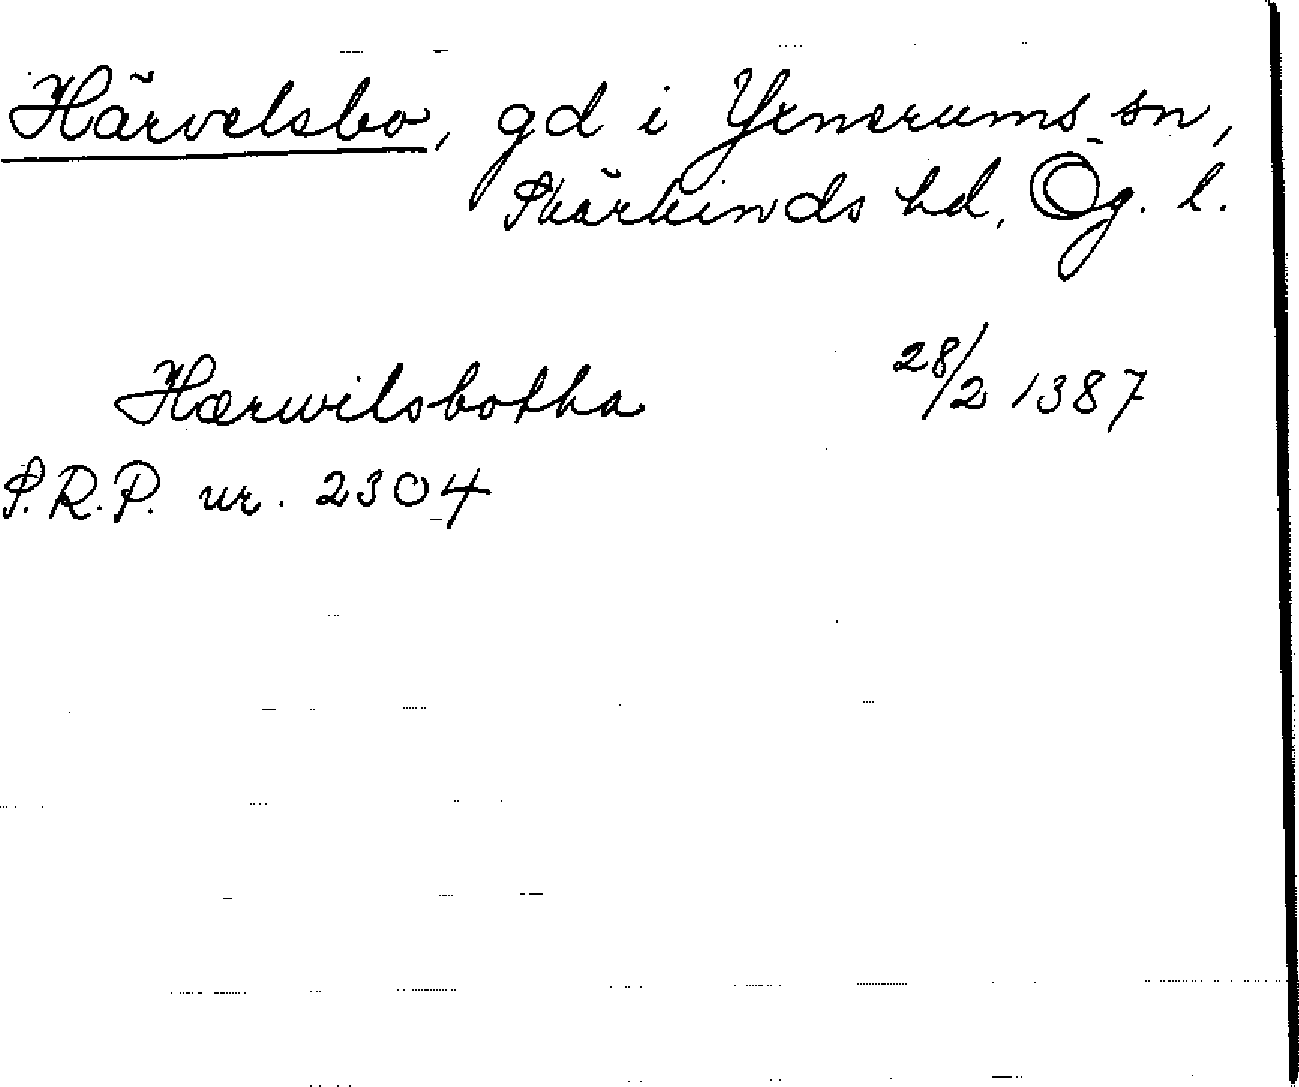 Härvelsbo, gd i Yxnerums sn,
Skärkinds hd, Ög. l.
Hærwilsbotha 28/2 1387
S.R.P. nr. 2304